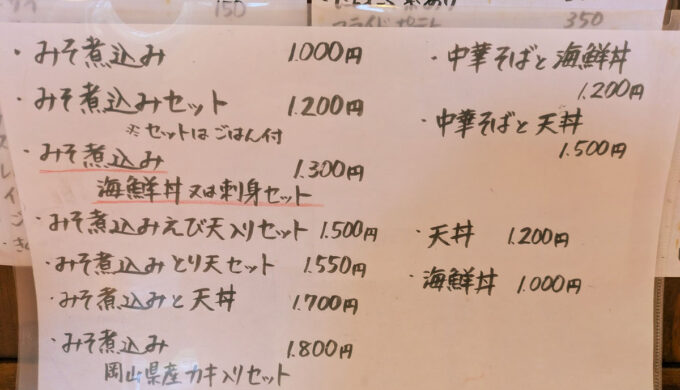 150
フライドポテト 350
・みそ煮込み 1.000円
・みそ煮込みセット 1.200円
※セットはごはん付
・みそ煮込み 1.300円
海鮮丼又は刺身セット
・みそ煮込みえび天入りセット 1.500円
・みそ煮込みとり天セット 1.550円
・みそ煮込みと天丼 1.700円
・みそ煮込み 1.800円
岡山県産カキ入りセット
・中華そばと海鮮丼
1.200円
・中華そばと天丼
1.500円
・天丼 1.200円
・海鮮丼 1.000円